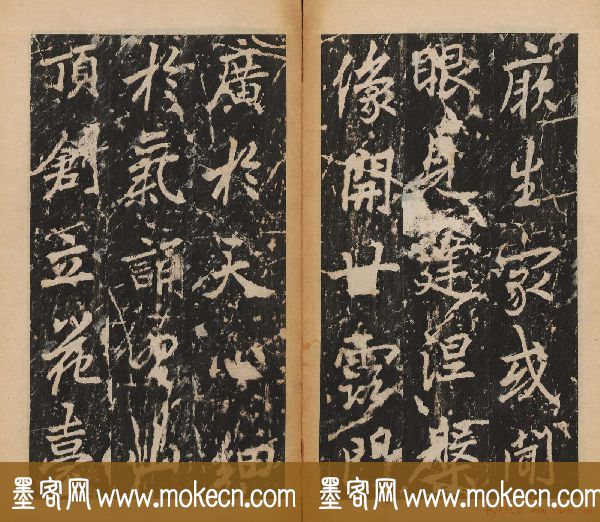 厥生家或聞
眼見建涅槃
像開甘露門
廣於天心細
於氣誦
頂創立花臺
墨客网 www.mokecn.com
墨客网 www.mokecn.com